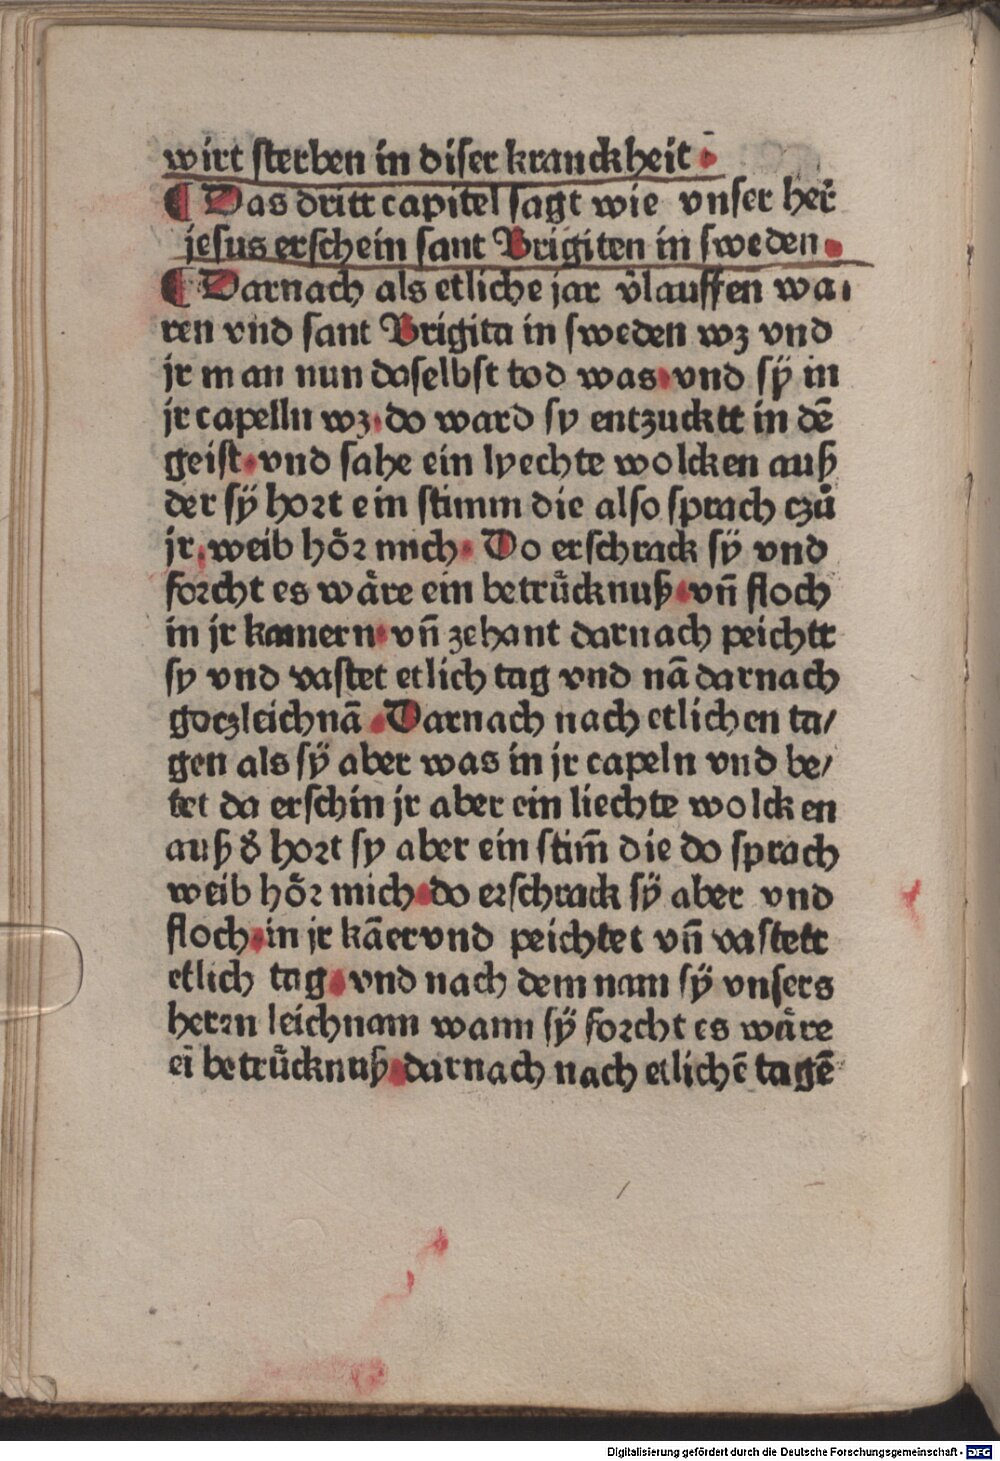 wirt sterben in diser kranckheit ·
¶ Das dritt capitel sagt wie vnser her̃
jesus erschein sant Brigiten in sweden ·
¶ Darnach als etliche jar v̾lauffen wa⸗
ren vnd sant Brigita in sweden wz vnd
jr man nun daselbst tod was · vnd sÿ in
jr capelln wz · do ward sy entzucktt in dē
geist · vnd sahe ein lyechte wolcken auß
der sÿ hort ein stimm die also sprach czů
jr · weib hoͤr mich · Do erschrack sÿ vnd
forcht es waͤre ein betruͤcknuß · vñ floch
in jr kamern · vñ zehant darnach peichtt
sy vnd vastet etlich tag vnd nā darnach
goczleichnā · Darnach nach etlichen ta/
gen als sÿ aber was in jr capeln vnd be/
tet da erschin jr aber ein liechte wolcken
auß d̾ hort sy aber ein stim̄ die do sprach
weib hoͤr mich · do erschrack sÿ aber vnd
floch · in jr kāer vnd peichtet vñ vastett
etlich tag · vnd nach dem nam sÿ vnsers
herrn leichnam wann sÿ forcht es waͤre
eī betruͤcknuß · darnach nach etlichē tagē
Digitalisierung gefördert durch die Deutsche Forschungsgemeinschaft - DFG